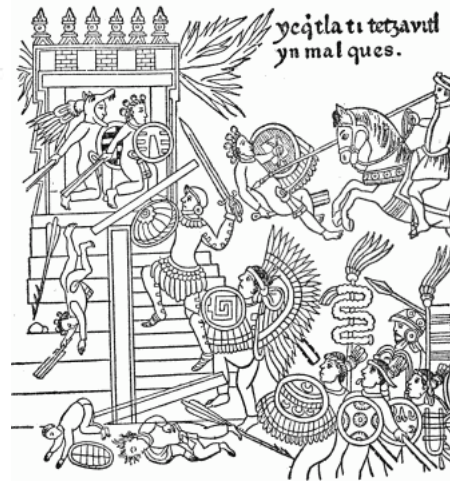 ycq̇tla ti tetzavitl
yn mal ques.